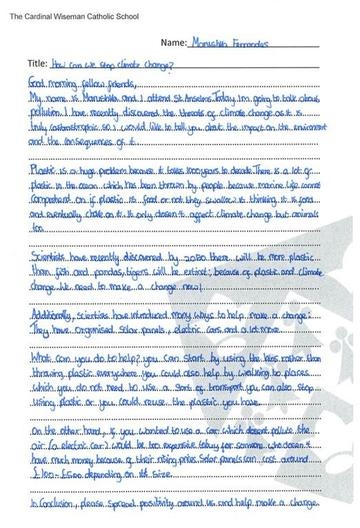 The Cardinal Wiseman Catholic School
Name: Marushka Fernandes
Title: How can we stop climate change?
Good morning fellow friends,
My name is Marushka and I attend St. Anselms. Today Im going to talk about
pollution. I have recently discovered the threats of climate change as it is
truly catastrophic so I would like to tell you about the impact on the enviroment
and the consequences of it.
Plastic is a huge problem because it takes 1000 years to decade. There is a lot of
plastic in the ocean which has been thrown by people because marine life cannot
comprehend on if plastic is food or not they swallow it thinking it is food
and eventually choke on it. It only doesn't affect climate change but animals
too.
Scientists have recently discovered by 2050 there will be more plastic
then fish and pandas, tigers will be extinct; because of plastic and climate
change. We need to make a change now!
Additionally, scientists have introduced many ways to help make a change:
They have organised solar panels, electric cars and a lot more.
What can you do to help? you can start by using the bins rather than
throwing plastic everywhere you could also help by walking to places
which you do not need to use a sort of transport you can also stop
using plastic or you could reuse the plastic you have.
On the other hand, if you wanted to use a car which doesnt pollute the
air (a electric car) would be too expensive to buy for someone who doesn't
have much money because of their rising prices. Solar panels can cost around
£100-£500 depending on it size.
In Conclusion, please spread positivity around us and help make a change.